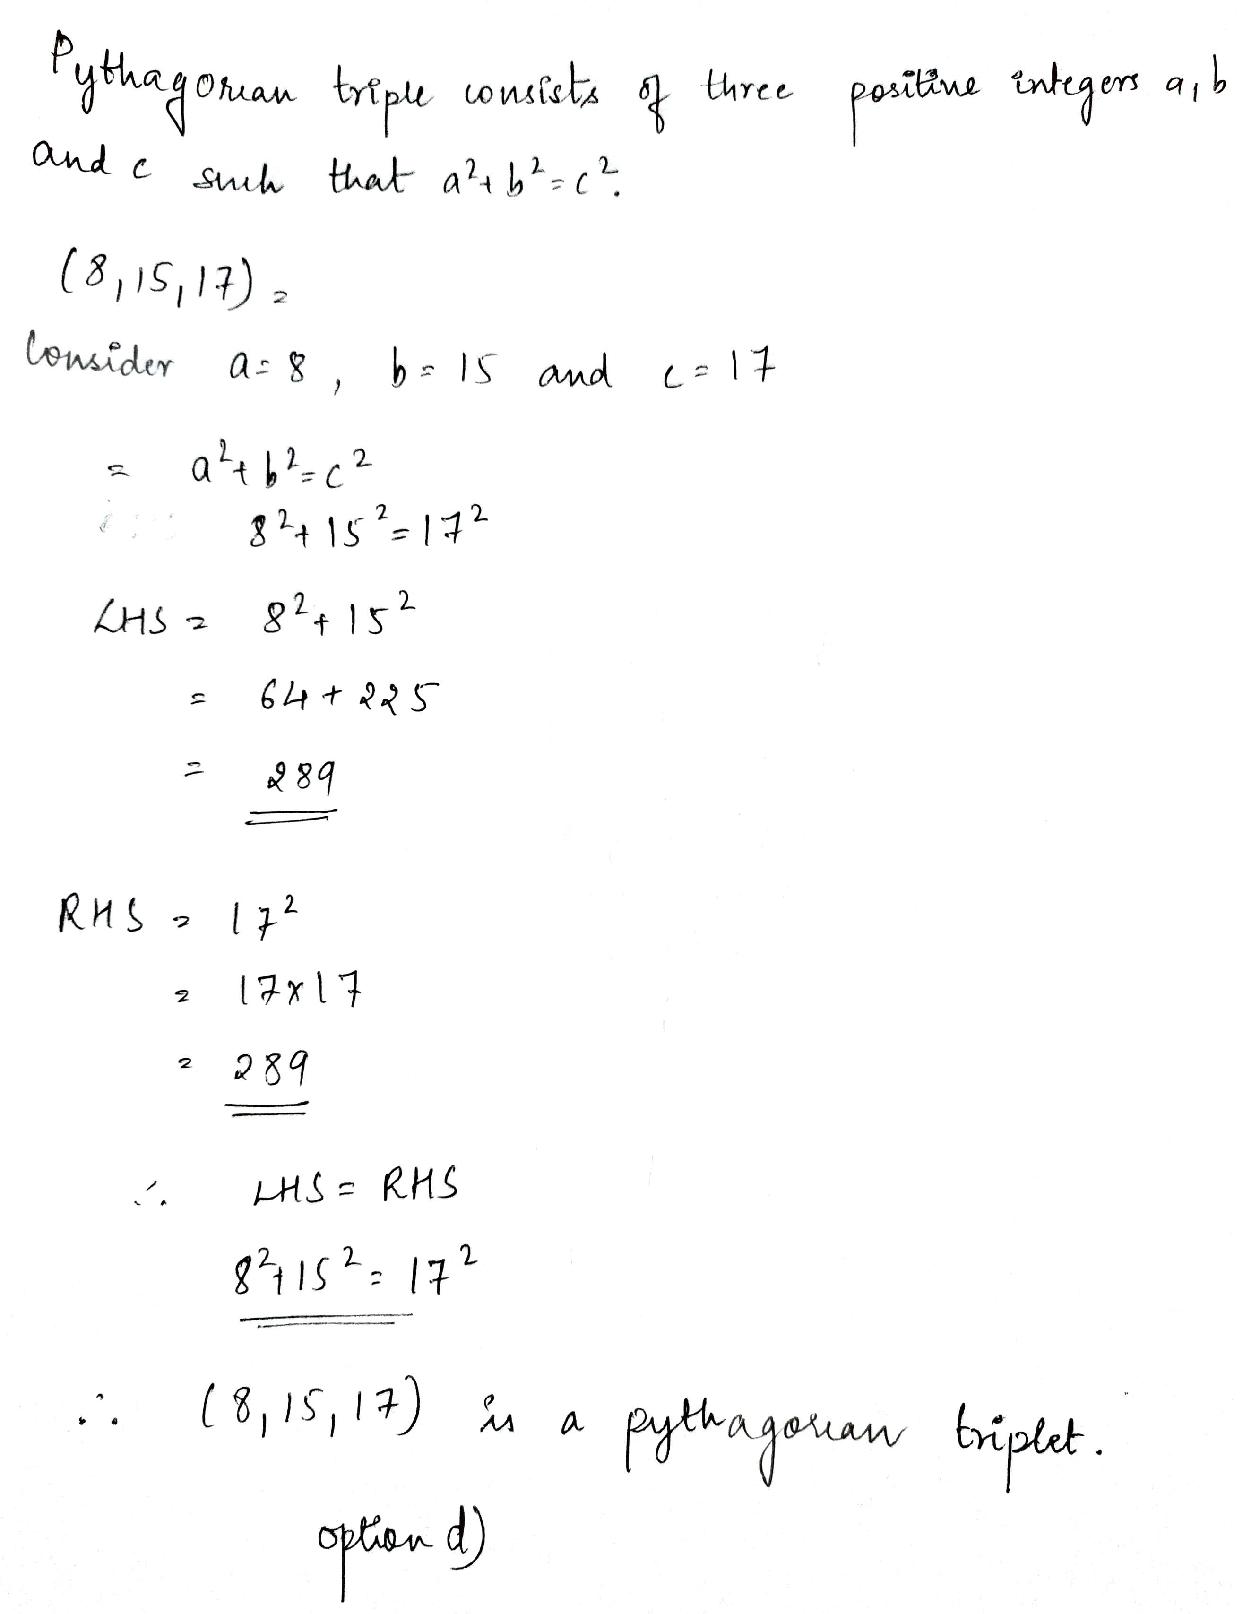 Pythagorean triple consists of three positive integers a, b
and c such that a²+b²=c².
(8,15,17) =
Consider a=8, b=15 and c=17
= a²+b²=c²
8²+15²=17²
LHS = 8²+15²
= 64+225
= 289
RHS = 17²
= 17×17
= 289
∴ LHS = RHS
8²+15²=17²
∴ (8,15,17) is a pythagorean triplet.
option d)